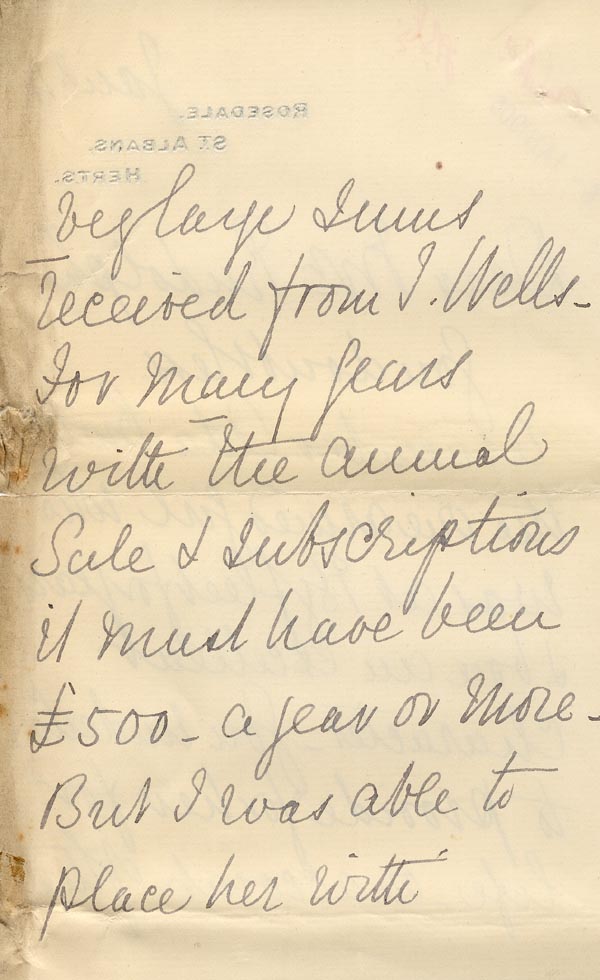 ROSEDALE.
ST ALBANS.
HERTS.
very large Sums
received from S. Wells -
for many years
with the annual
Sale & Subscriptions
it must have been
£500 - a year or more -
But I was able to
place her with